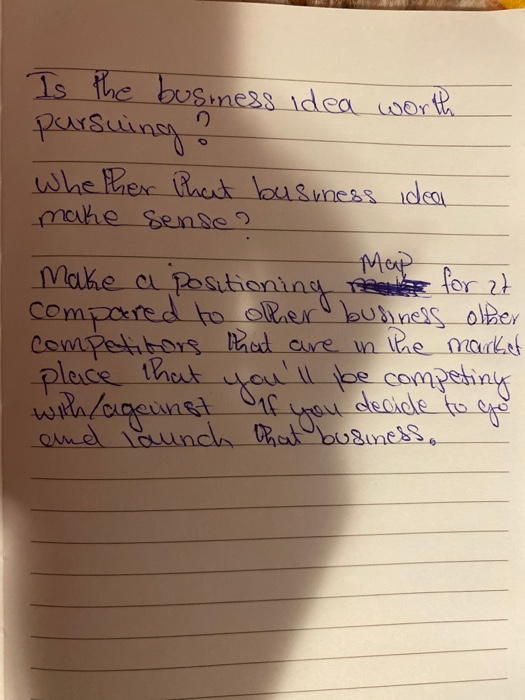 Is the business idea worth
pursuing?
Whether that business idea
make sense?
Map
Make a positioning for it
compared to other business other
competitors that are in the market
place that you'll be competing
with/against if you decide to go
and launch that business.